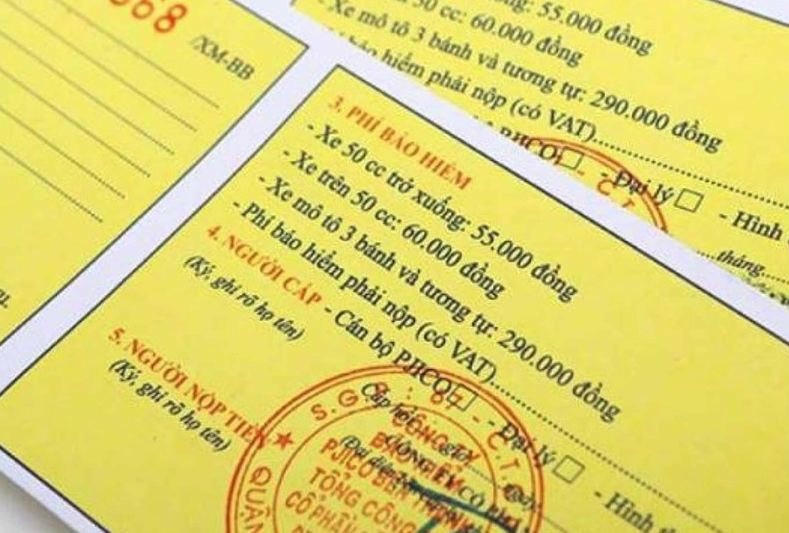 668
/XM-BB
55.000 đồng
- Xe trên 50 cc: 60.000 đồng
- Xe mô tô 3 bánh và tương tự: 290.000 đồng
bảo hiểm phải nộp (có VAT)
PJICO □ - Đại lý □ - Hình
tháng
3. PHÍ BẢO HIỂM
- Xe 50 cc trở xuống: 55.000 đồng
- Xe trên 50 cc: 60.000 đồng
- Xe mô tô 3 bánh và tương tự: 290.000 đồng
- Phí bảo hiểm phải nộp (có VAT)
4. NGƯỜI CẤP - Cán bộ PJICO □ - Đại lý □ - Hình
(Ký, ghi rõ họ tên)
Cấp hồi
5. NGƯỜI NỘP TIỀN
(Ký, ghi rõ họ tên)
CÔNG TY
BẢO HIỂM
PJICO BẾN THÀNH
TỔNG CÔNG
CỔ PHẦN
QUẬN